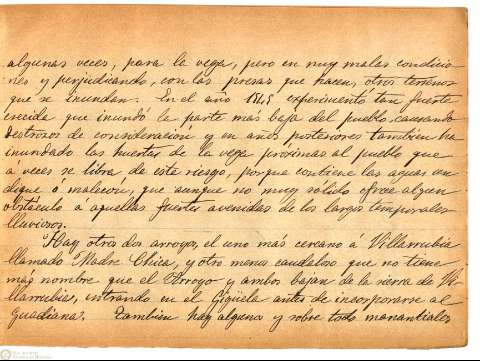 algunas veces, para la vega, pero en muy malas condicio-
nes y perjudicando, con las presas que hacen, otros terrenos
que se inundan. En el año 1845 experimentó tan fuerte
crecida que inundó la parte más baja del pueblo causando
destrozos de consideración y en años posteriores tambien ha
inundado las huertas de la vega próximas al pueblo que
á veces se libra de este riesgo, porque contiene las aguas un
dique ó malecon, que aunque no muy solido ofrece algun
obstáculo á aquellas fuertes avenidas de los largos temporales
lluviosos.
Hay otros dos arroyos, el uno más cercano á Villarrubia
llamado Madre Chica, y otro menos caudaloso que no tiene
más nombre que el Arroyo y ambos bajan de la sierra de Vi-
llarrubia, entrando en el Gigüela antes de incorporarse al
Guadiana. Tambien hay alguna y sobre todo manantiales